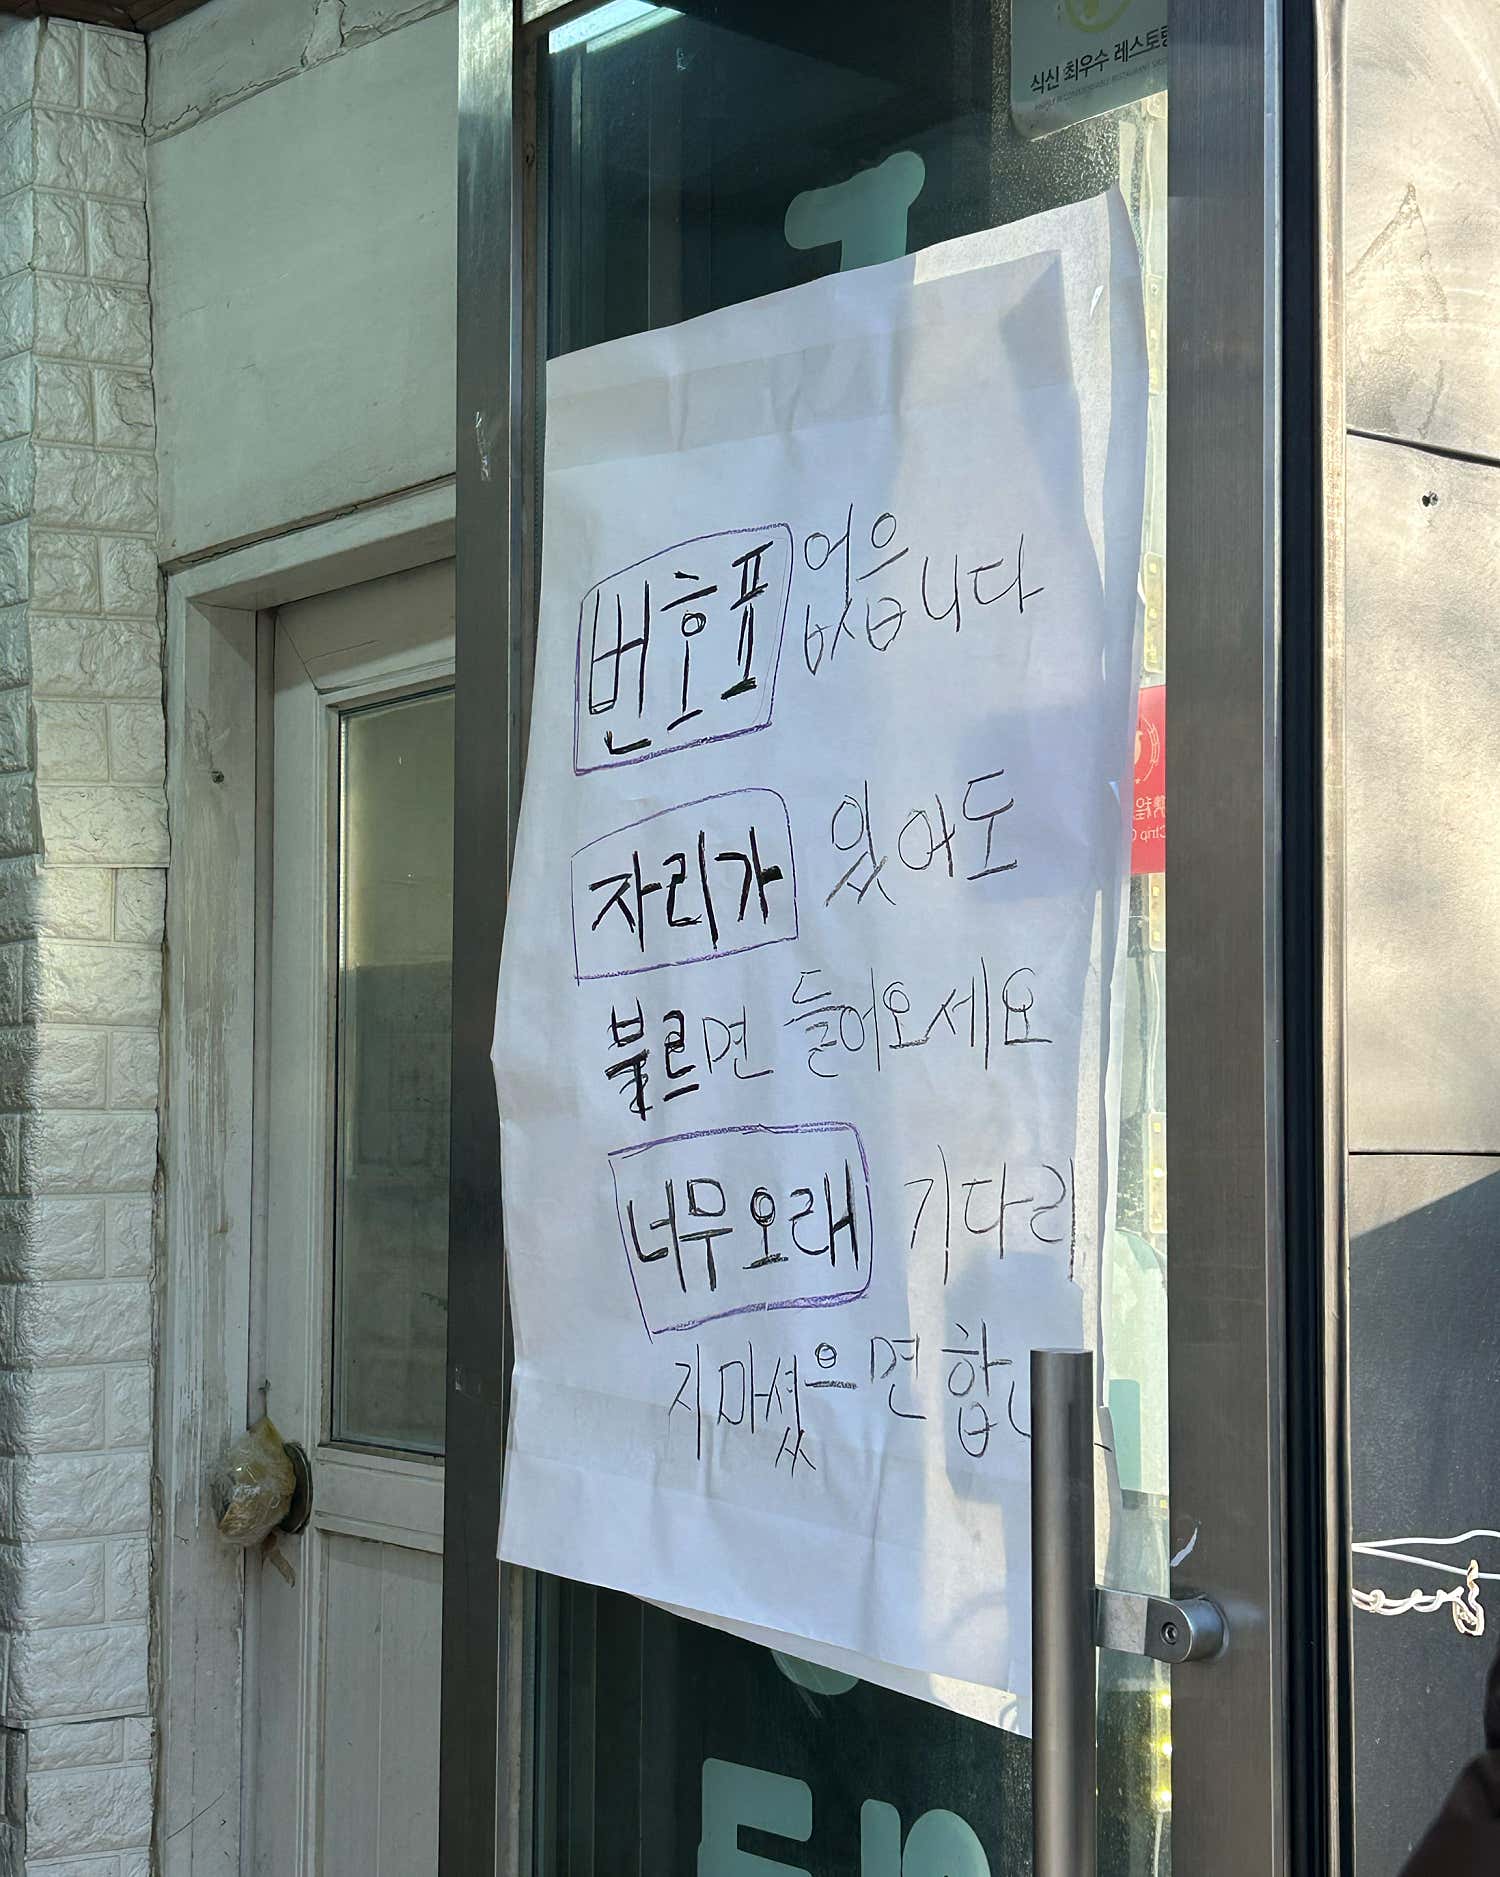 식신 최우수 레스토랑
1
번호표 없습니다
자리가 있어도
불르면 들어오세요
너무오래 기다리
지마셨으면 합니